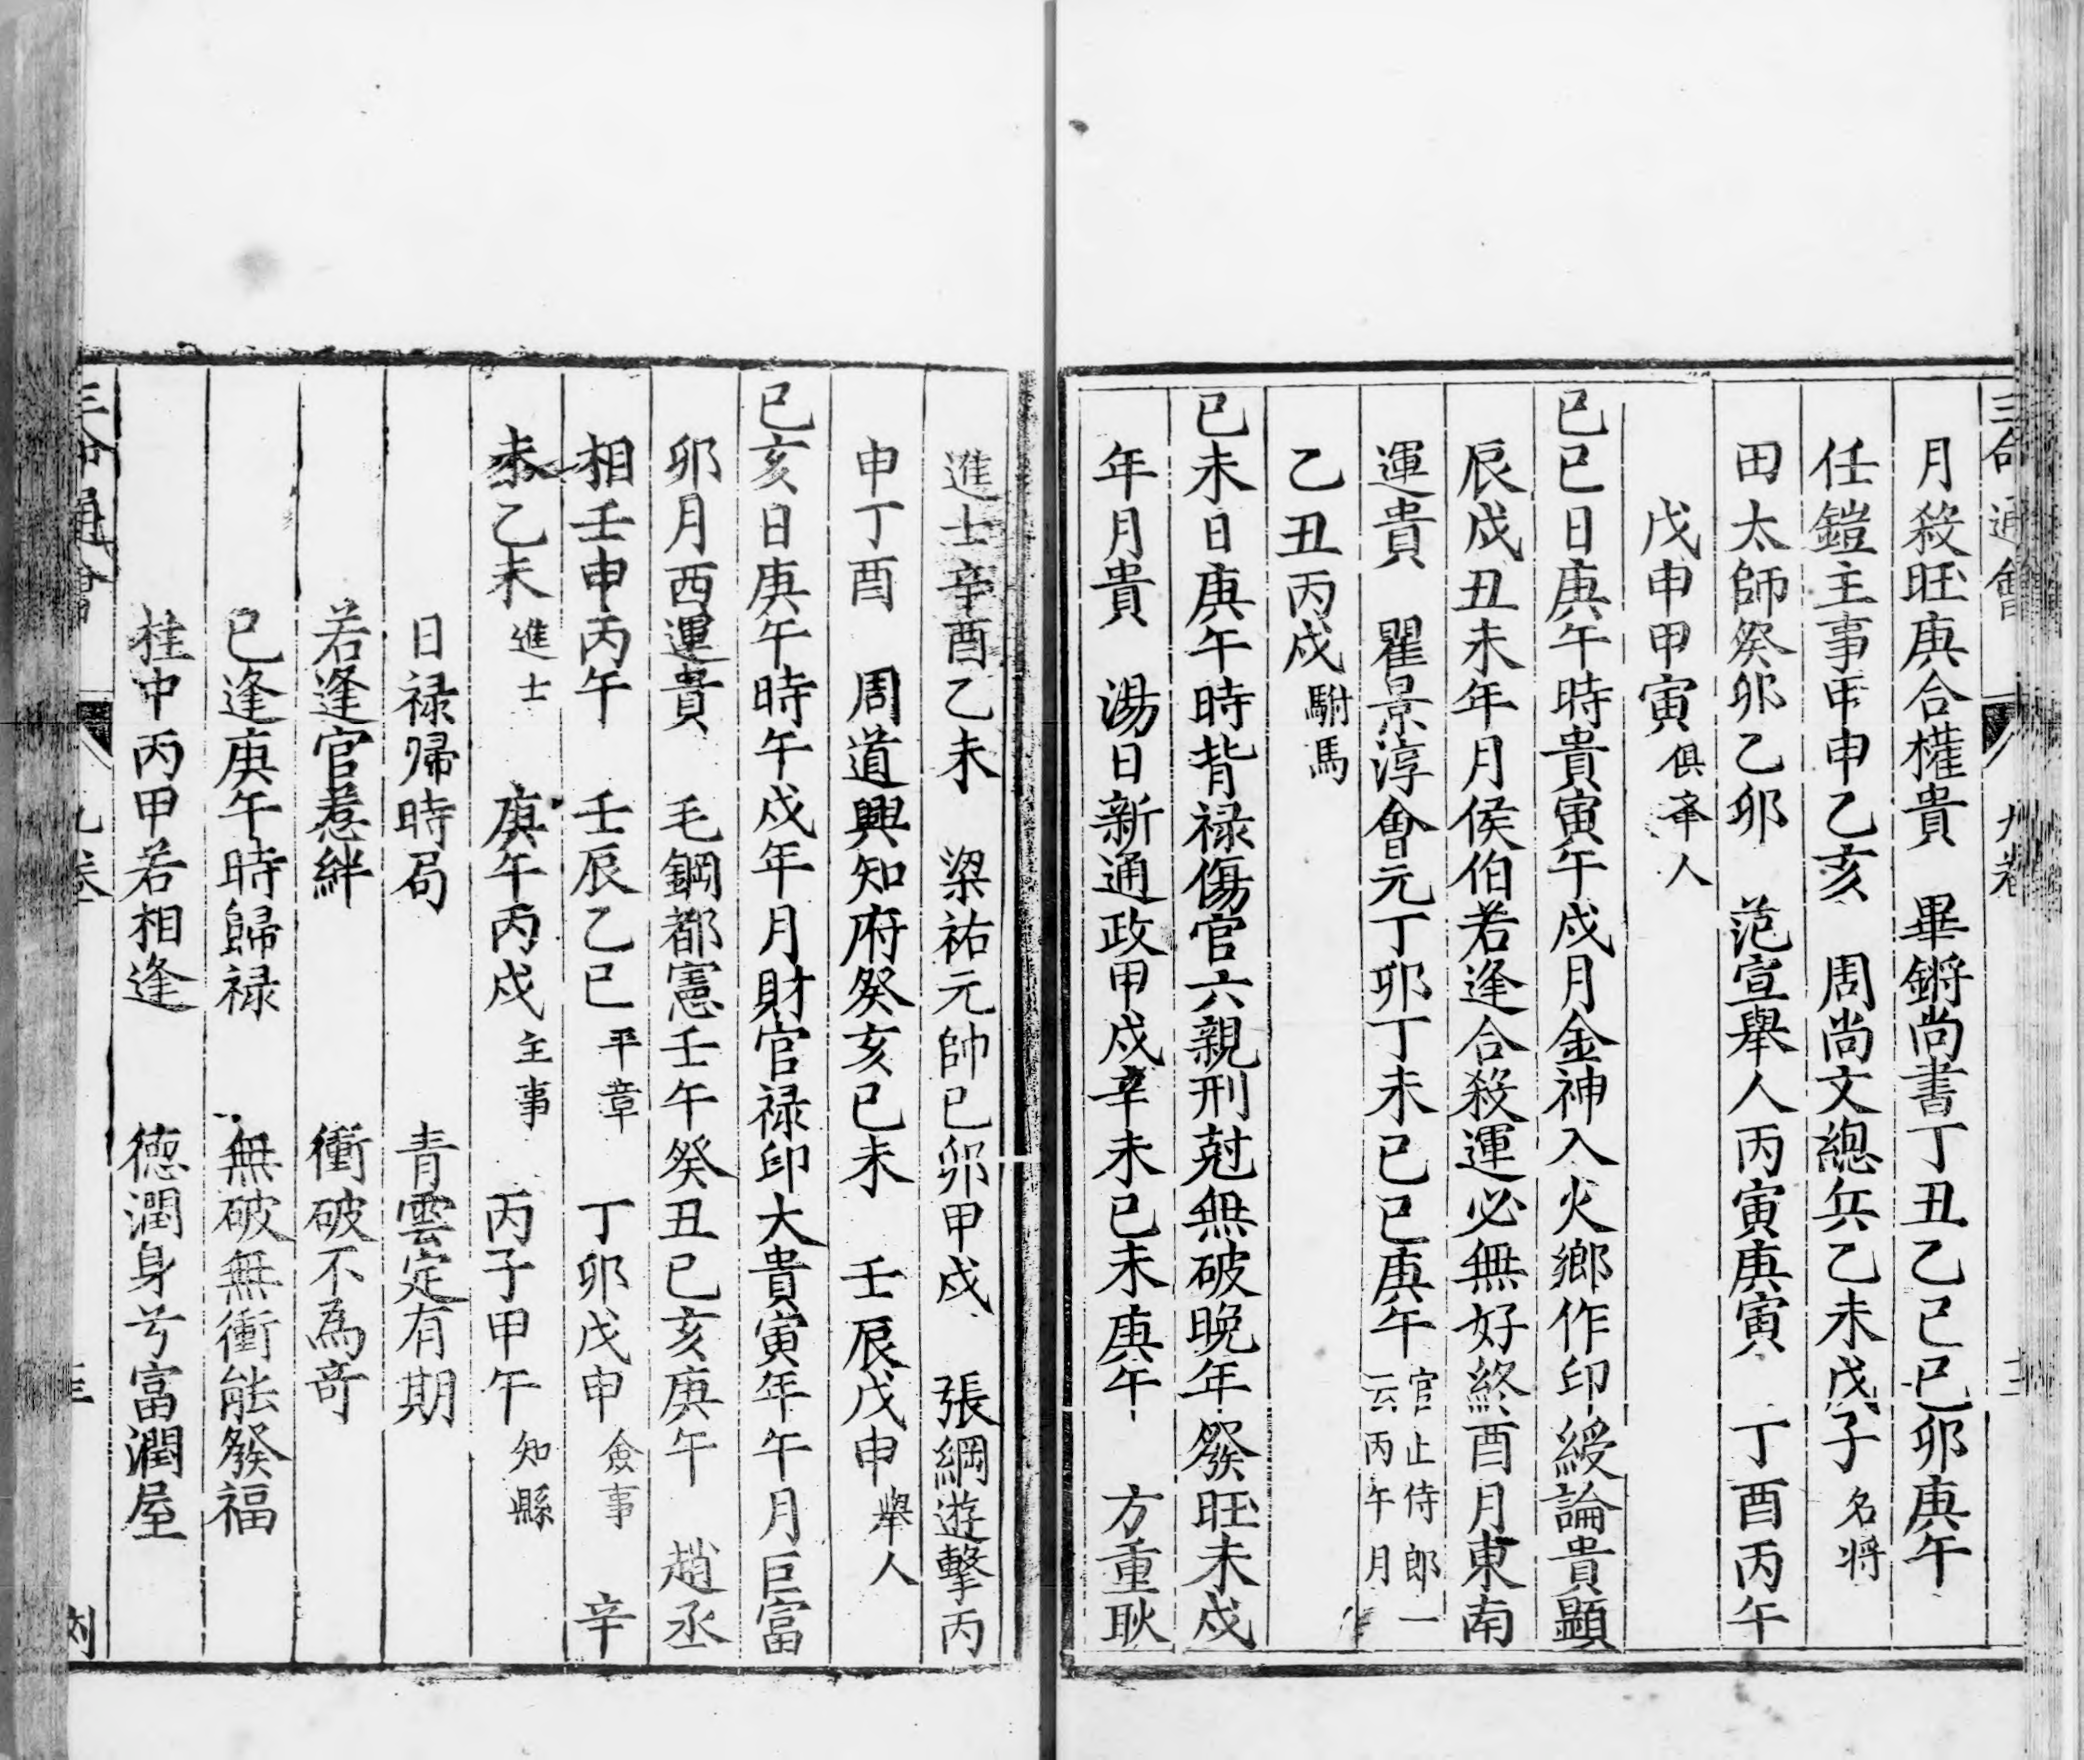 三命通會 九卷 三
月殺旺庚合權貴 畢鏘尚書丁丑乙巳己卯庚午
任鎧主事甲申乙亥 周尚文總兵乙未戊子名将
田太師癸卯乙卯 范宣舉人丙寅庚寅 丁酉丙午
戊申甲寅俱夲人
己巳日庚午時貴寅午戌月金神入火鄉作印綬論貴顯
辰戌丑未年月侯伯若逢合殺運必無好終酉月東南
運貴 瞿景淳會元丁卯丁未己巳庚午官止侍郎一云丙午月
乙丑丙戌駙馬
己未日庚午時背禄傷官六親刑尅無破晚年發旺未戌
年月貴 湯日新通政甲戌辛未己未庚午 方重耿
進士辛酉乙未 梁祐元帥己卯甲戌 張綱遊擊丙
申丁酉 周道興知府癸亥己未 壬辰戊申舉人
己亥日庚午時午戌年月財官禄印大貴寅年午月巨富
卯月西運貴 毛鋼都憲壬午癸丑己亥庚午 趙丞
相壬申丙午 壬辰乙巳平章 丁卯戊申僉事 辛
未乙未進士 庚午丙戌主事 丙子甲午知縣
日禄歸時局 青雲定有期
若逢官惹絆 衝破不為奇
己逢庚午時歸禄 無破無衝能發福
柱中丙甲若相逢 德潤身兮富潤屋
三命通會 九卷